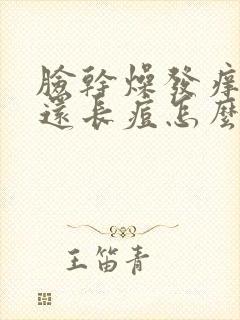 臉幹燥發癢
還長痘怎麼
王笛青